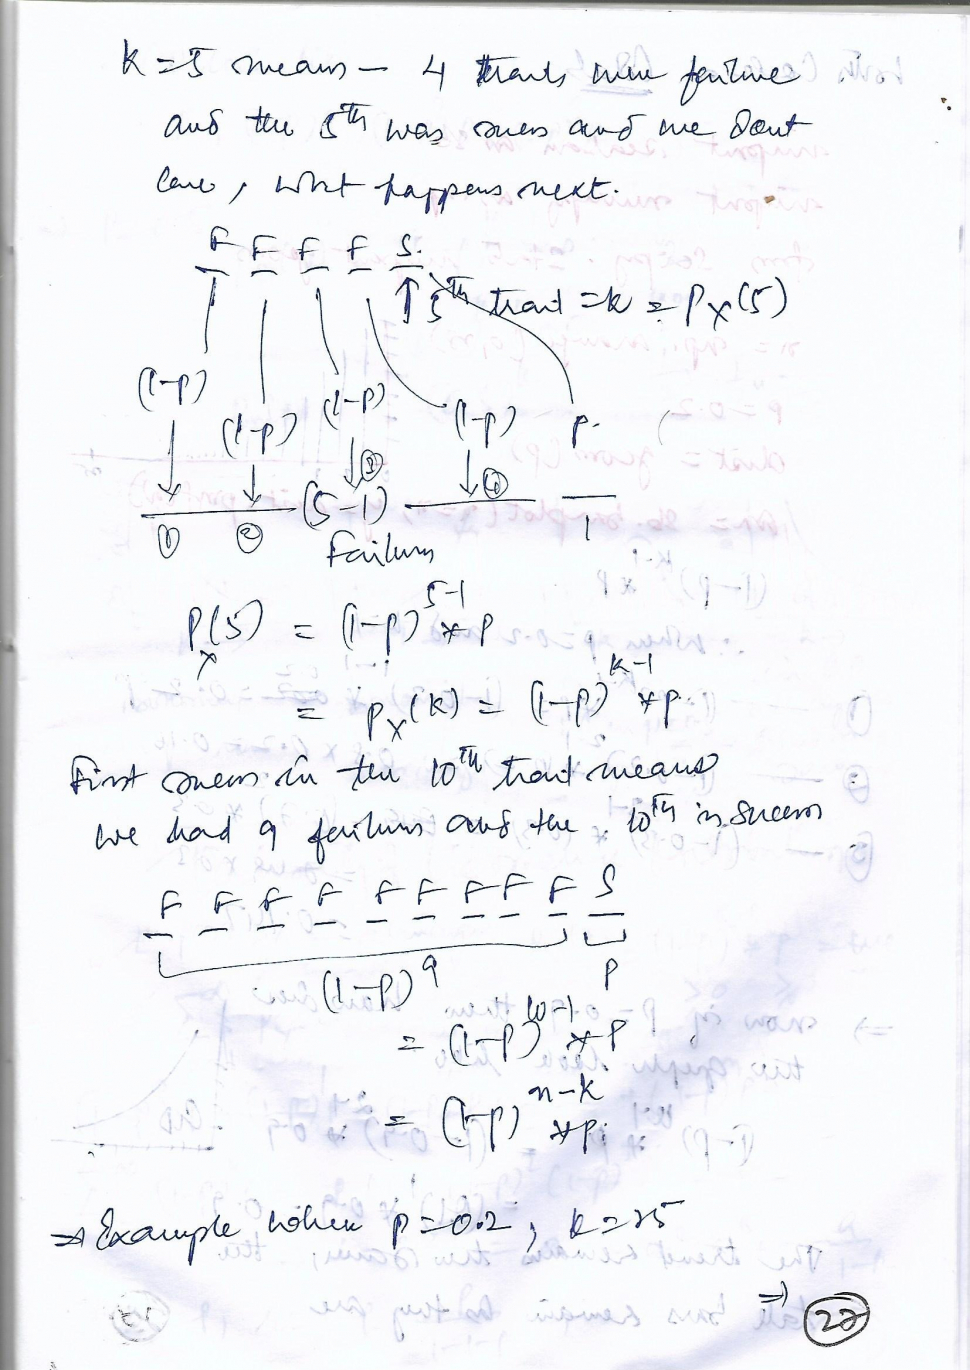 K=5 means – 4 trails were failure
and the 5th was sucess and we dont
care, what happens next.
F F F F S.
↑ 5th trail = k = Px(5)
(1-p) (1-p) (1-p) (1-p) p.
③ ④
(5-1) 1
① ② Failures
Px(5) = (1-p)^5-1 * p
= Px(k) = (1-p)^k-1 * p.
First sucess in the 10th trail means
we had 9 failures and the 10th is sucess
F F F F F F F F F S
(1-p)^9 p
= (1-p)^10-1 * p
= (1-p)^n-k * p.
⇒ Example when p=0.2, k=25
⇒
22